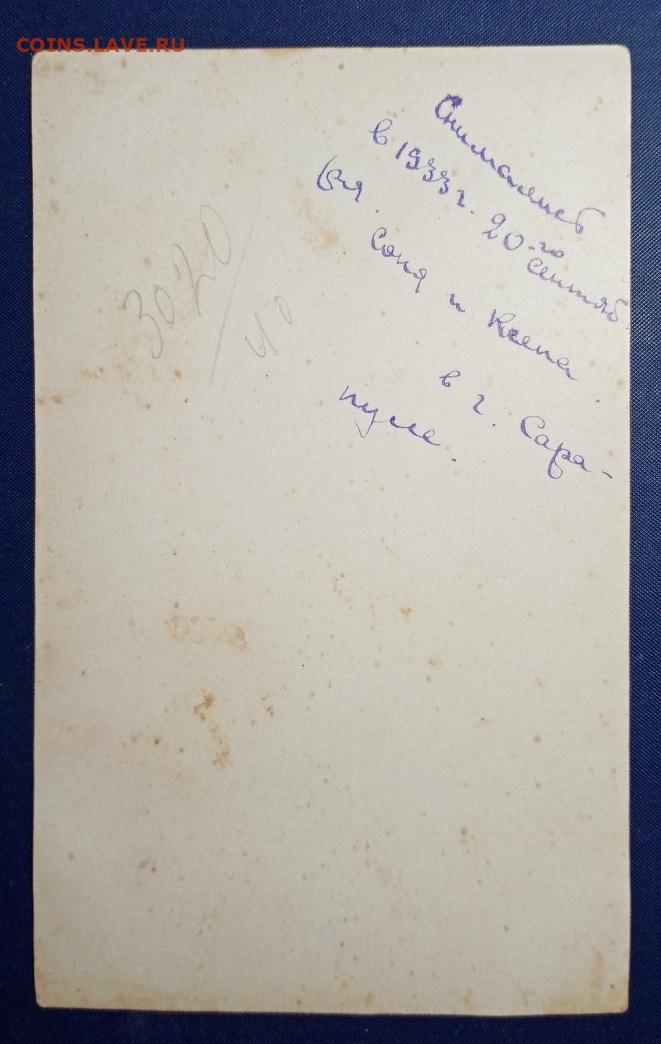 COINS.LAVE.RU
Снимались
в 1933 г. 20-го сентяб
ря.
Соня и Ксена
в г. Сара-
пуле.
3020
40